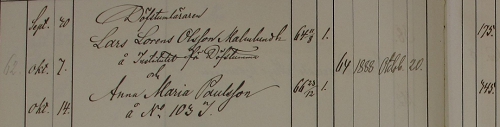 Döfstumläraren
Sept. 20 Lars Lorens Olsson Malmlundh 64 1. 175.
62. å Institutet för Döfstumma
okt. 7. och 64 1888 Octbr. 20.
Anna Maria Paulsson 66 23/12 1. 745.
okt. 14. å No. 103 I.